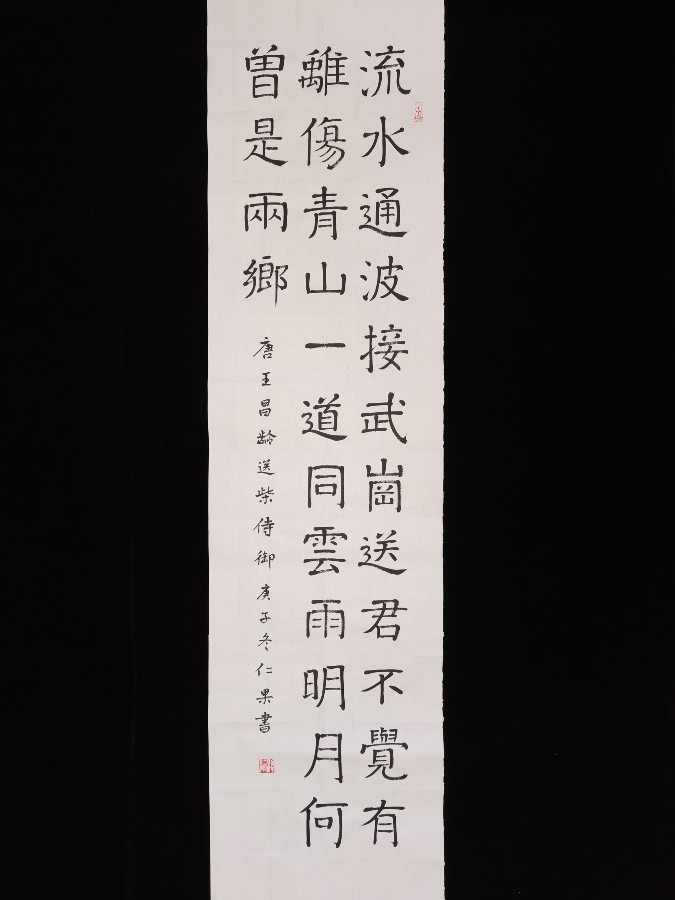 流水通波接武崗送君不覺有
離傷青山一道同雲雨明月何
曾是兩鄉
唐王昌齡送柴侍御庚子冬仁果書